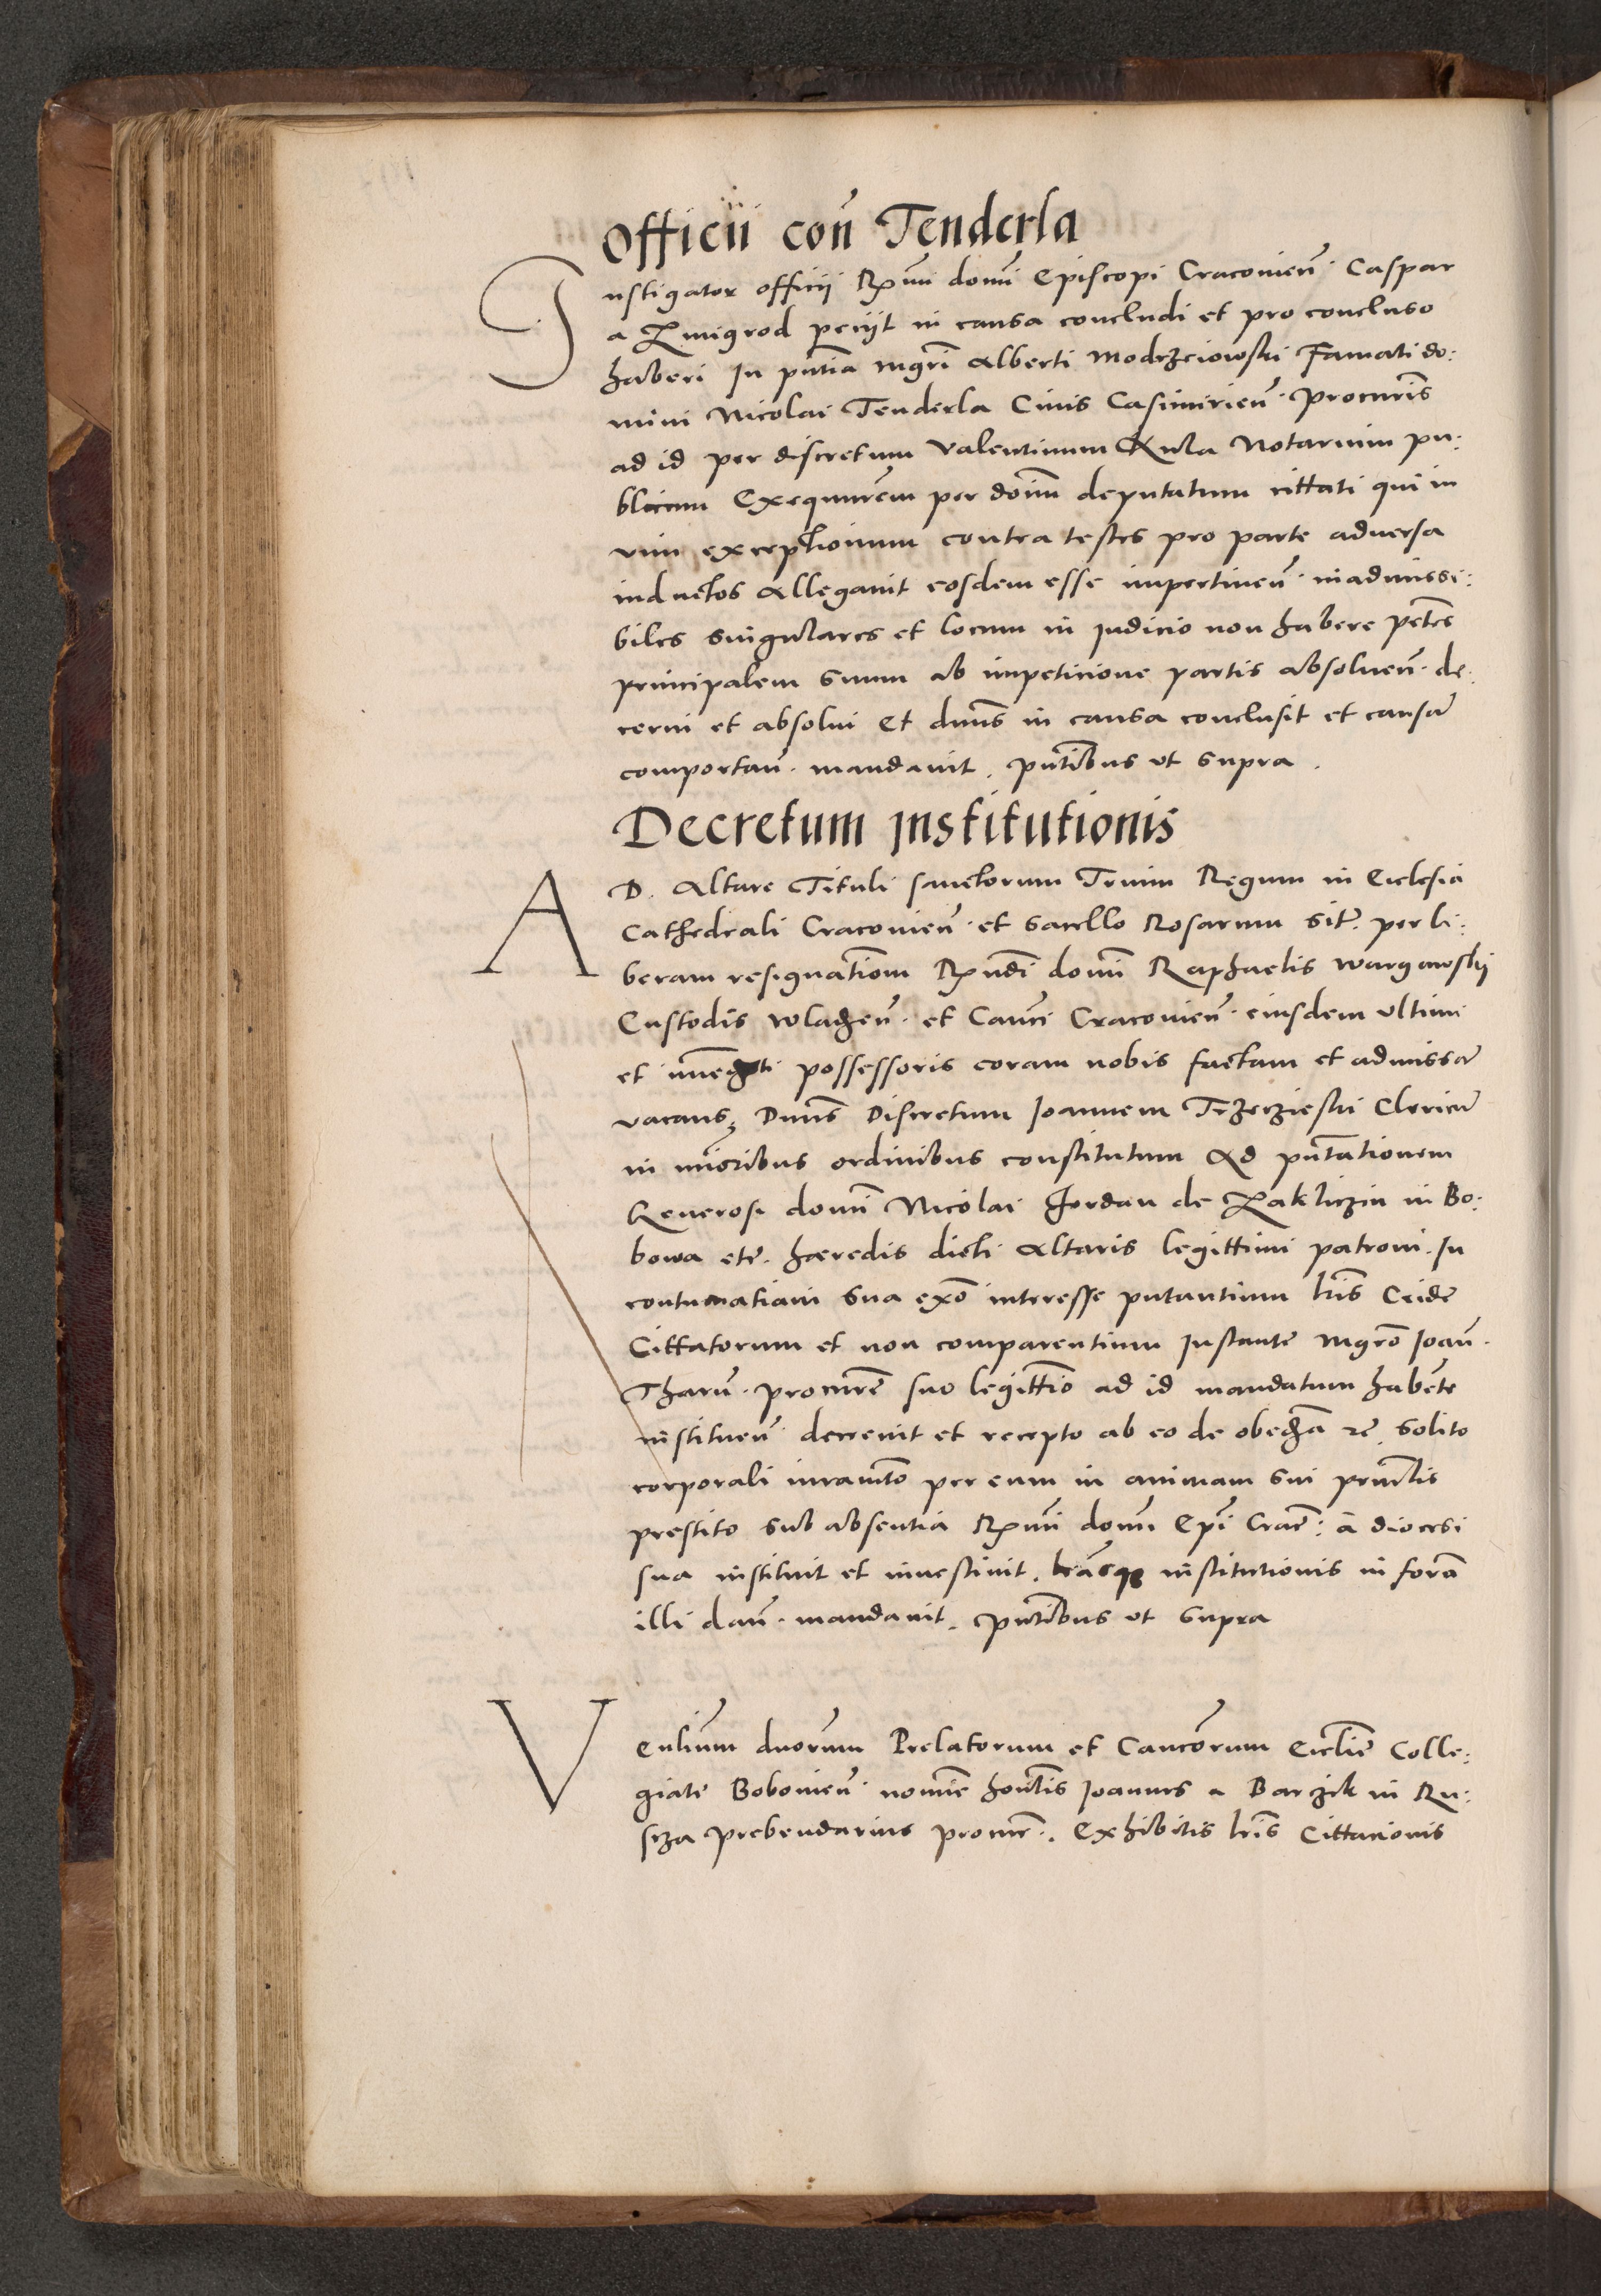 Officii con̄ Tenderla
Instigator officii Rx̄mi domi Episcopi Cracovien̄. Caspar
a Zmigrod peciit in causa concludi et pro concluso
haberi In pn̄tia mgr̄i Alberti Modrzeiowski Famati do:
mini Nicolai Tenderla Civis Casimirien̄. Procur̄is
ad id per discretum Valentinum Kula Notarium pu:
blicum Exequutrem per doīm deputatum cittati qui in
vim exceptionum contra testes pro parte adversa
inductos Allegavit eosdem esse impertinen̄. inadmissi:
biles singulares et locum in judicio non habere peten̄s
principalem suum ab impeticione partis absolven̄. de:
cerni et absolvi Et dnūs in causa conclusit et causā
comportan̄. mandavit. pn̄tibus ut supra.
Decretum institutionis
AD. Altare Tituli sanctorum Trium Regum in Ecclesia
Cathedrali Cracovien̄. et sacello Rosarum sit̄. per li:
beram resignatiom̄ Rn̄di domī Raphaelis Wargawskij
Custodis Wladzen̄. et Can̄ci Cracovien̄. eiusdem ultimi
et possessoris coram nobis factam et admissā
vacans, Dnūs Discretum Ioannem Trzeczieski Clericū
in mīoribus ordinibus constitutum Ad pn̄tationem
Generosi domī Nicolai Jordan de Zakliczin in Bo:
bowa etc̄. hæredis dicti Altaris legittimi patroni. In
contumatiam sua exō interesse putantium lr̄is Eidē
Cittatorum et non comparentium Instante mgr̄o Ioan̄.
Tharn̄. procur̄e suo legittīo ad id mandatum habēte
instituen̄. decrevit et recepto ab eo de obed̄a rē. solito
corporali iuramt̄o per eum in animam sui prin̄lis
prestito sub absentia Rx̄mi domī Epī Crac̄: a diocesi
sua instituit et investivit. lr̄asque institutionis in formā
illi dan̄. mandavit. pn̄tibus ut supra
Venl̄ium dnorum Prelatorum et Canc̄orum Eccl̄ie Colle:
giatē Bobovien̄. nomīe hon̄lis Ioannes a Barzik in Ru:
scza prebendarius procur̄. Exhibitis lr̄is Cittacionis